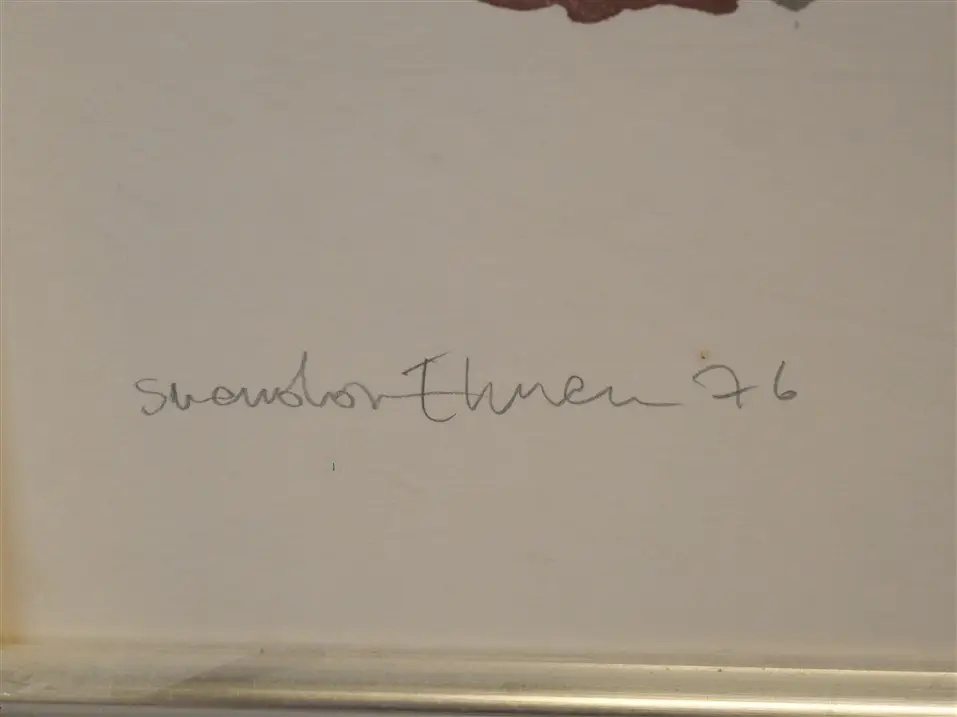 Svenolov Ehren 76